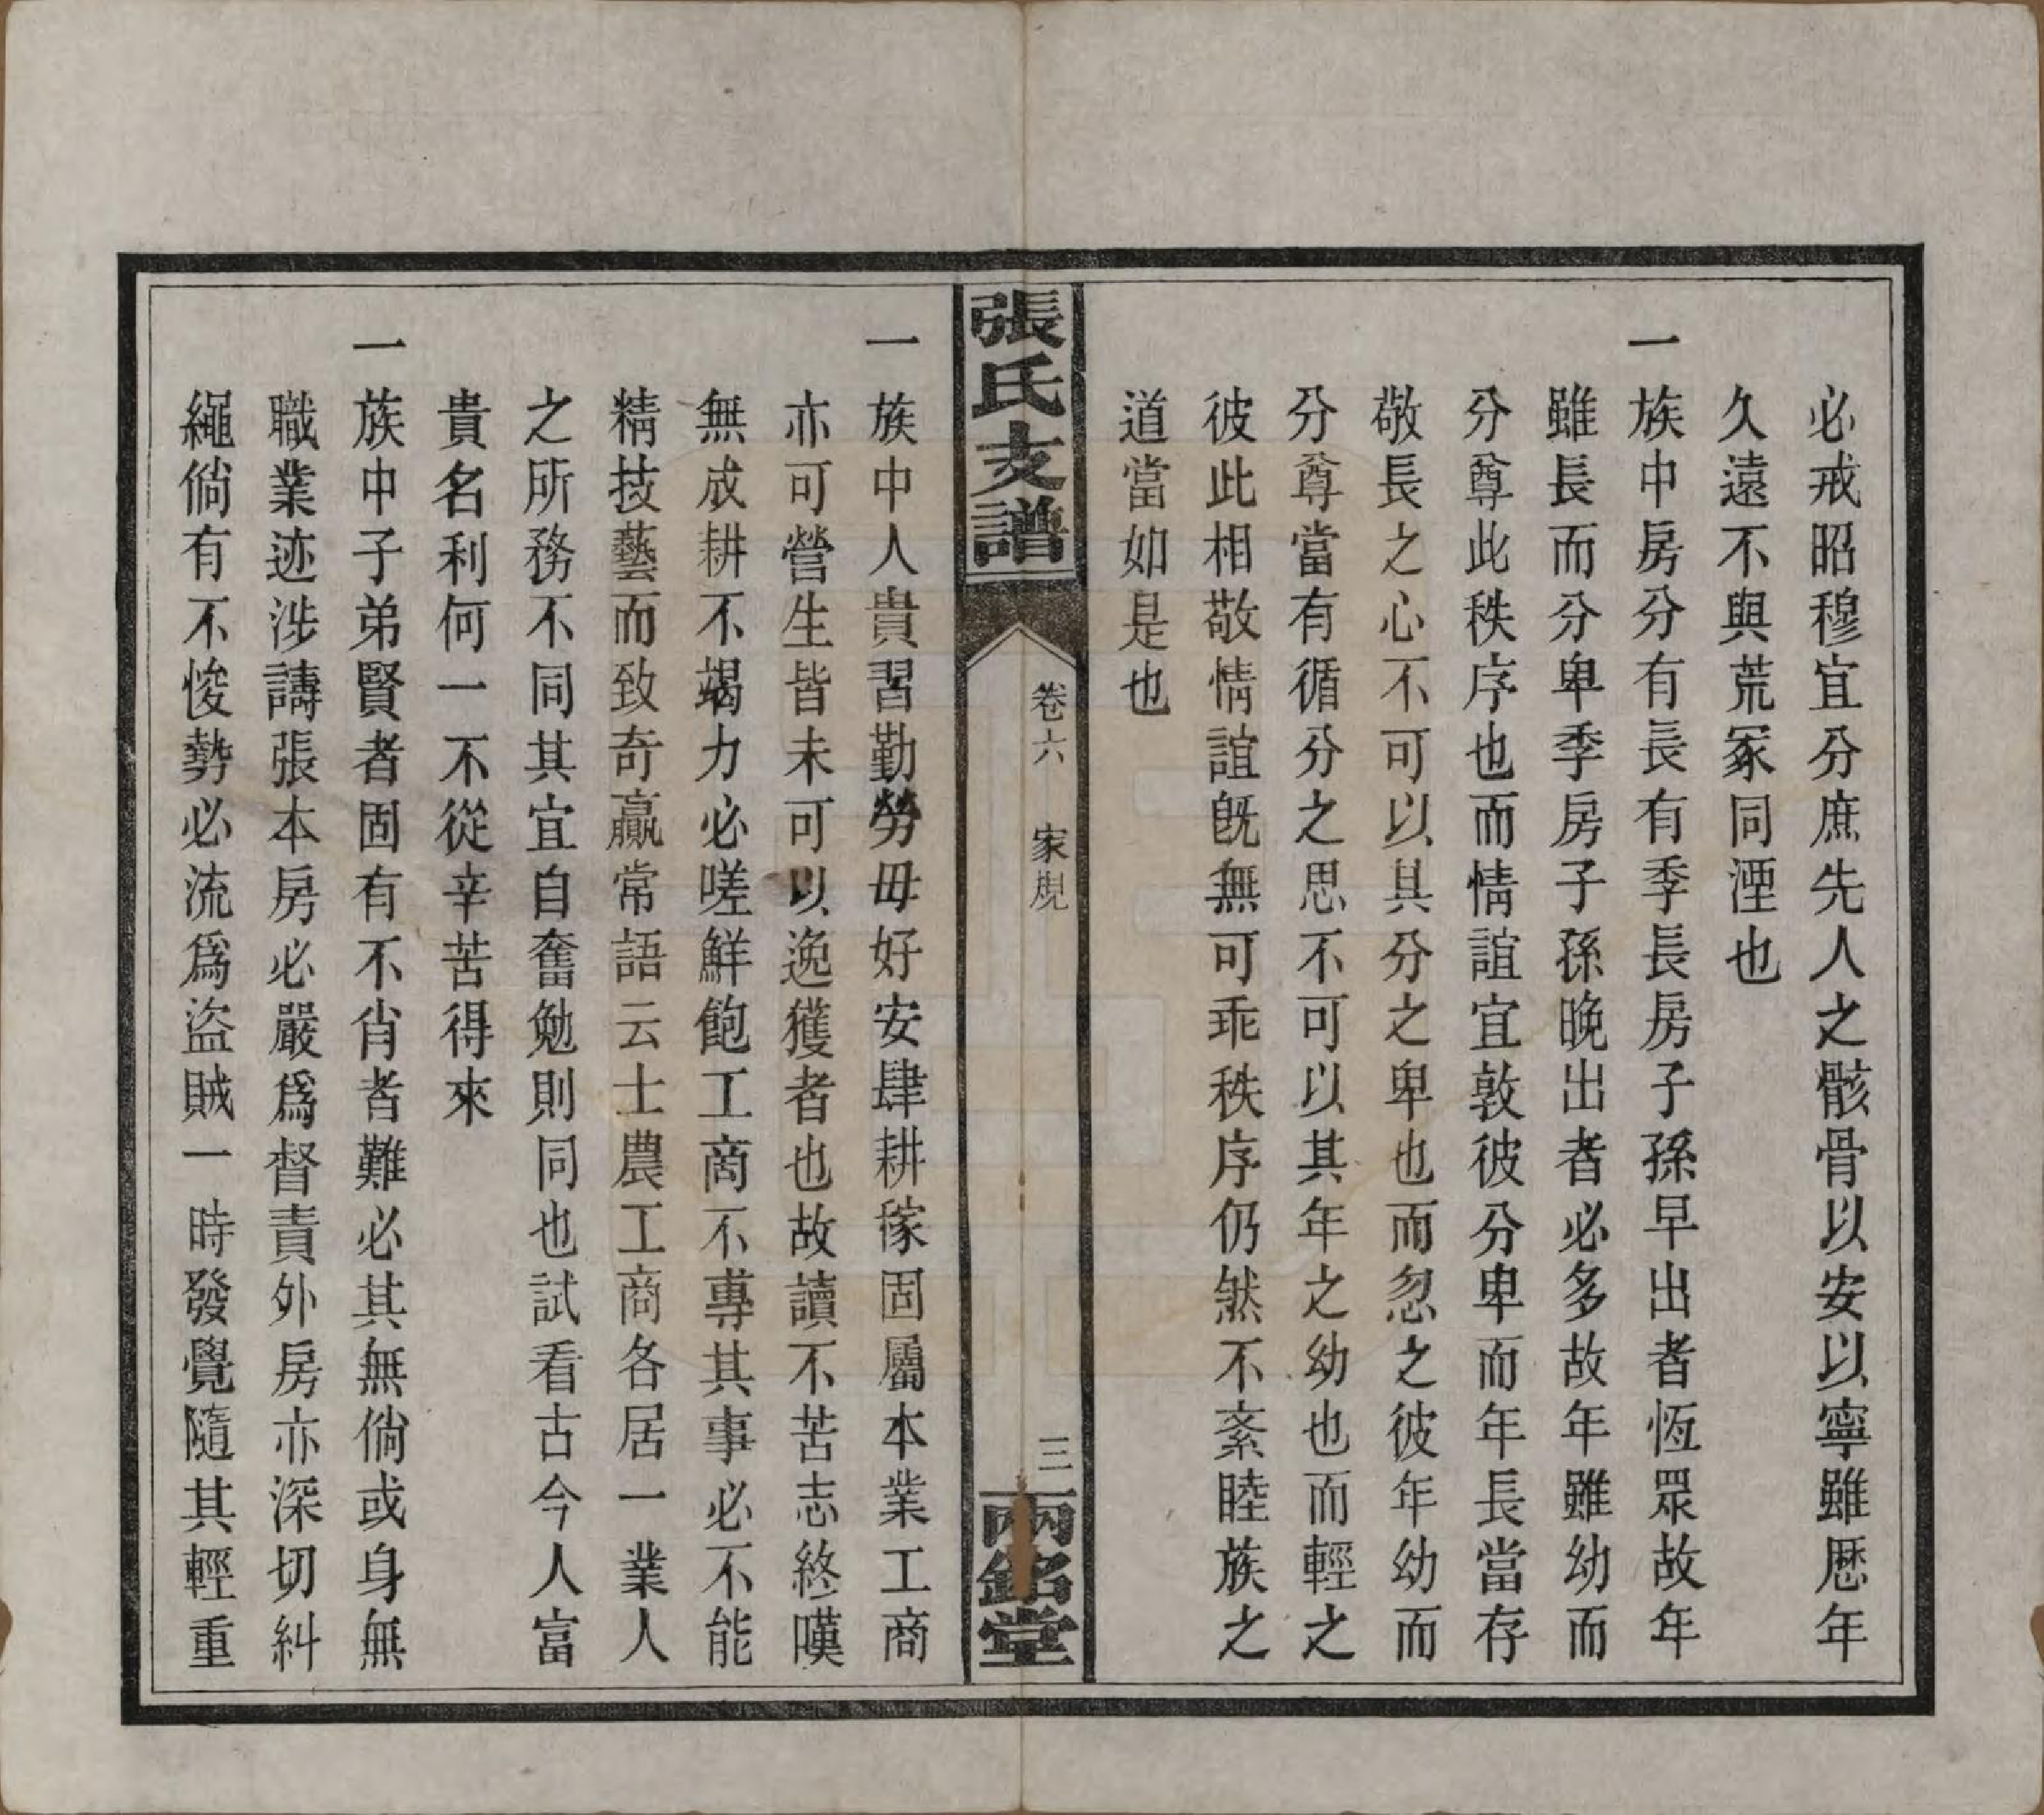 必戒昭穆宜分庶先人之骸骨以安以寧雖歷年
久遠不與荒冢同湮也
一族中房分有長有季長房子孫早出者恆眾故年
雖長而分卑季房子孫晚出者必多故年雖幼而
分尊此秩序也而情誼宜敦彼分卑而年長當存
敬長之心不可以其分之卑也而忽之彼年幼而
分尊當有循分之思不可以其年之幼也而輕之
彼此相敬情誼旣無可乖秩序仍然不紊睦族之
道當如是也
張氏支譜
卷六 家規
三
兩銘堂
一族中人貴習勤勞毋好安肆耕稼固屬本業工商
亦可營生皆未可以逸獲者也故讀不苦志終嘆
無成耕不竭力必嗟鮮飽工商不專其事必不能
精技藝而致奇贏常語云士農工商各居一業人
之所務不同其宜自奮勉則同也試看古今人富
貴名利何一不從辛苦得來
一族中子弟賢者固有不肖者難必其無倘或身無
職業迹涉譸張本房必嚴爲督責外房亦深切糾
繩倘有不悛勢必流爲盜賊一時發覺隨其輕重